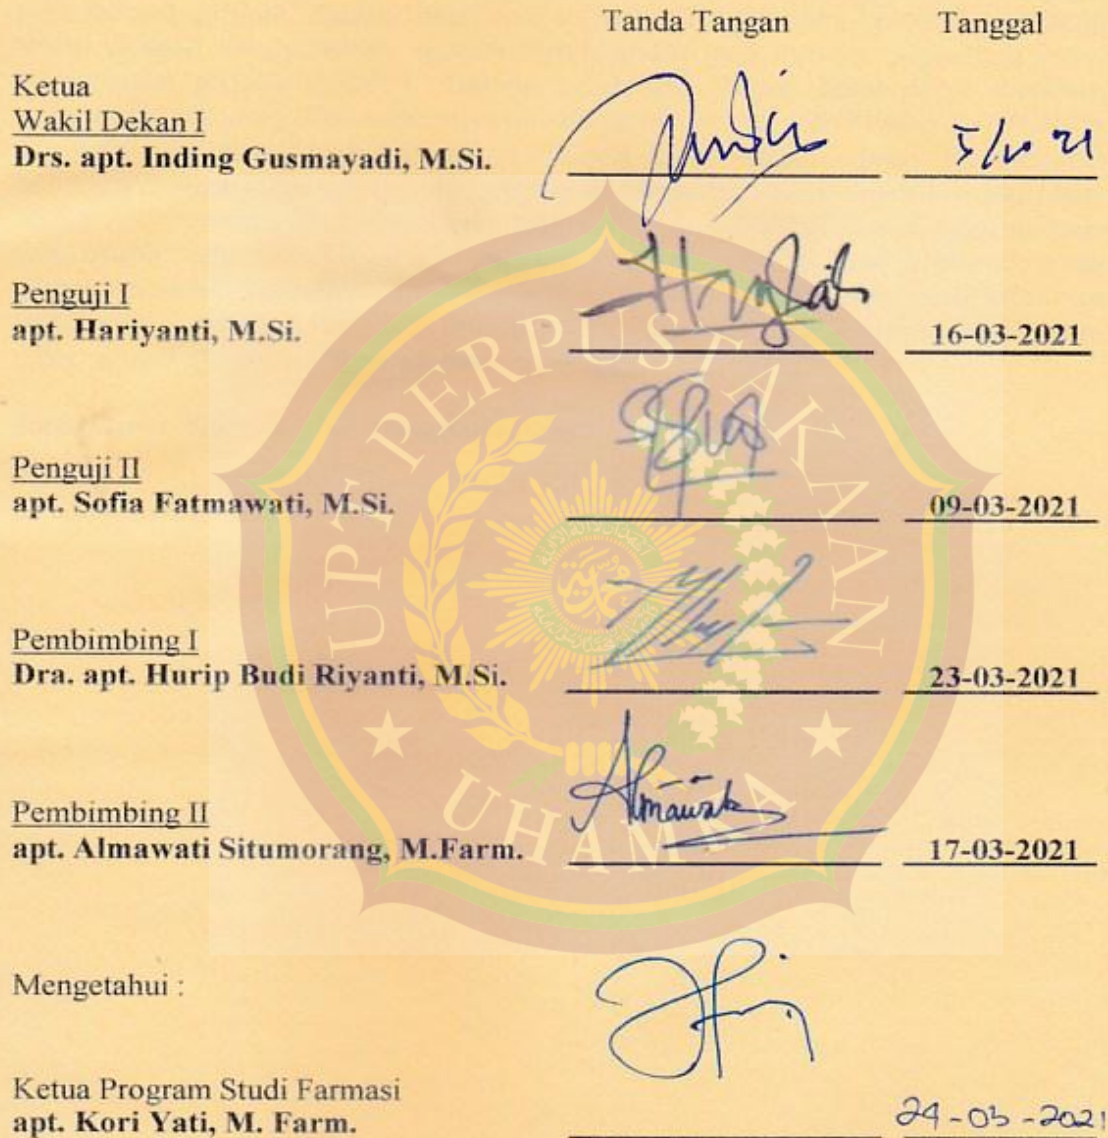 Tanda Tangan Tanggal
Ketua
Wakil Dekan I
Drs. apt. Inding Gusmayadi, M.Si. 5/10 21
Penguji I
apt. Hariyanti, M.Si. 16-03-2021
Penguji II
apt. Sofia Fatmawati, M.Si. 09-03-2021
Pembimbing I
Dra. apt. Hurip Budi Riyanti, M.Si. 23-03-2021
Pembimbing II
Almawati
apt. Almawati Situmorang, M.Farm. 17-03-2021
Mengetahui :
Ketua Program Studi Farmasi
apt. Kori Yati, M. Farm. 24-03-2021
UPT PERPUSTAKAAN
UHAMKA